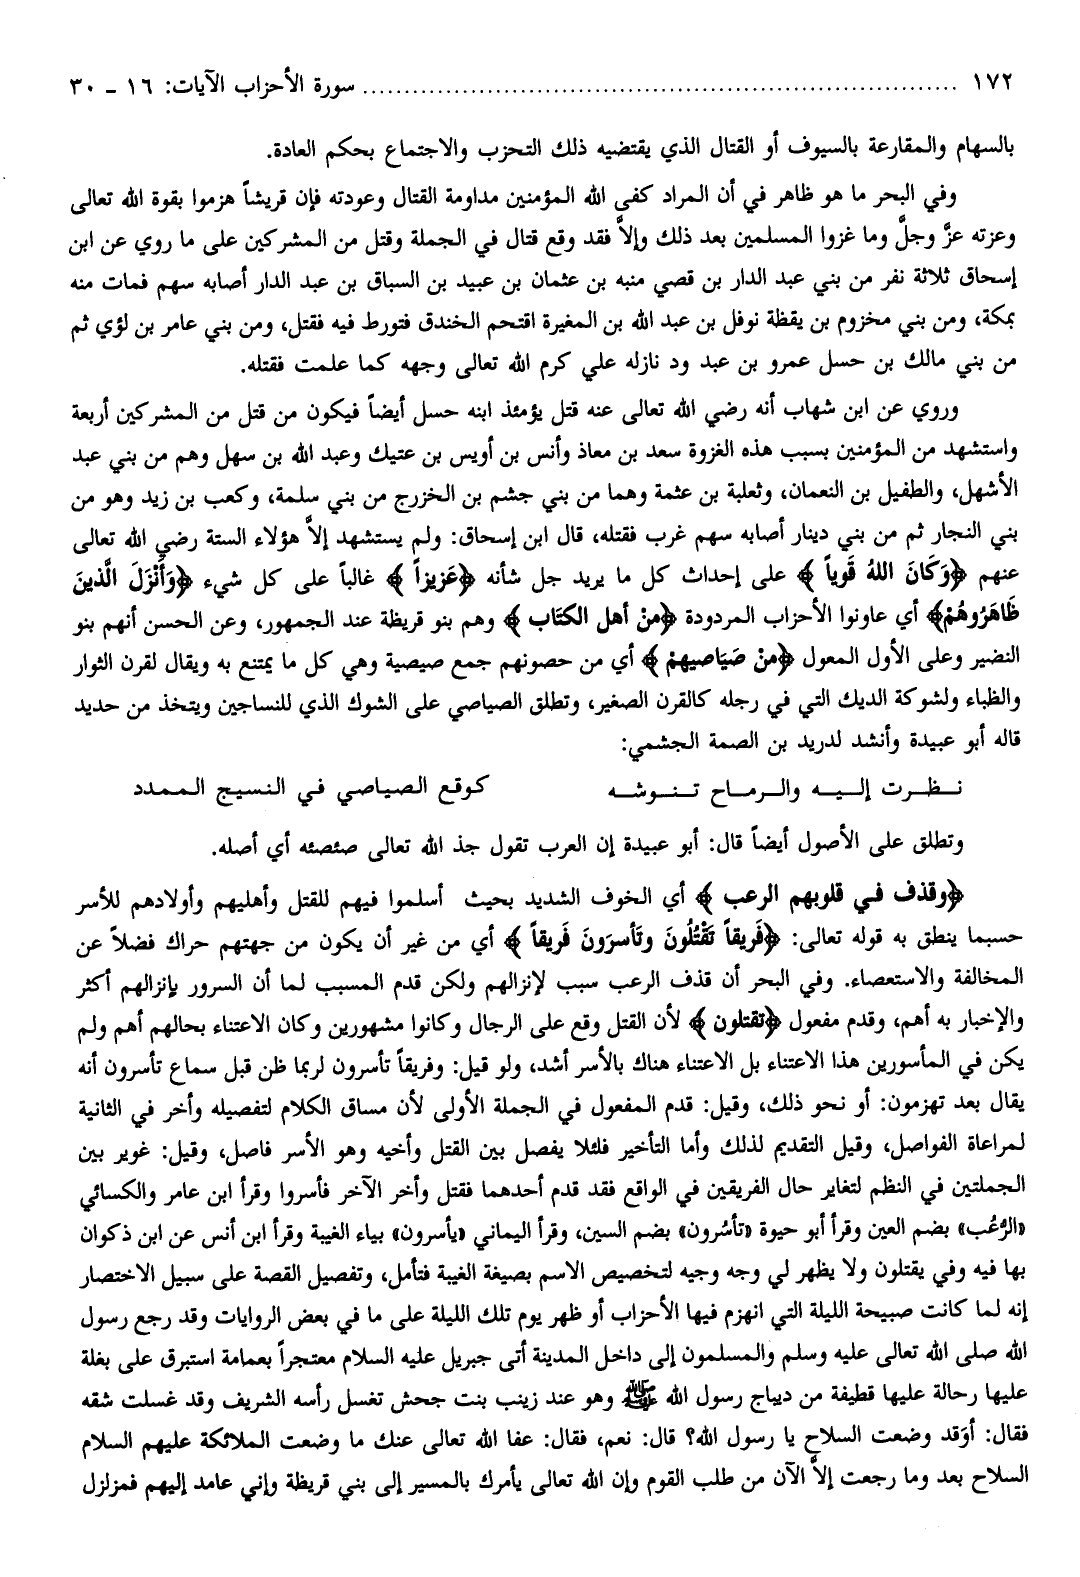 ١٧٢ ........................................................................ سورة الأحزاب الآيات: ١٦ ـ ٣٠
بالسهام والمقارعة بالسيوف أو القتال الذي يقتضيه ذلك التحزب والاجتماع بحكم العادة.
وفي البحر ما هو ظاهر في أن المراد كفى الله المؤمنين مداومة القتال وعودته فإن قريشاً هزموا بقوة الله تعالى
وعزته عزَّ وجلَّ وما غزوا المسلمين بعد ذلك وإلاَّ فقد وقع قتال في الجملة وقتل من المشركين على ما روي عن ابن
إسحاق ثلاثة نفر من بني عبد الدار بن قصي منبه بن عثمان بن عبيد بن السباق بن عبد الدار أصابه سهم فمات منه
بمكة، ومن بني مخزوم بن يقظة نوفل بن عبد الله بن المغيرة اقتحم الخندق فتورط فيه فقتل، ومن بني عامر بن لؤي ثم
من بني مالك بن حسل عمرو بن عبد ود نازله علي كرم الله تعالى وجهه كما علمت فقتله.
وروي عن ابن شهاب أنه رضي الله تعالى عنه قتل يؤمئذ ابنه حسل أيضاً فيكون من قتل من المشركين أربعة
واستشهد من المؤمنين بسبب هذه الغزوة سعد بن معاذ وأنس بن أويس بن عتيك وعبد الله بن سهل وهم من بني عبد
الأشهل، والطفيل بن النعمان، وثعلبة بن عثمة وهما من بني جشم بن الخزرج من بني سلمة، وكعب بن زيد وهو من
بني النجار ثم من بني دينار أصابه سهم غرب فقتله، قال ابن إسحاق: ولم يستشهد إلاَّ هؤلاء الستة رضي الله تعالى
عنهم ﴿وَكَانَ اللهُ قَوياً﴾ على إحداث كل ما يريد جل شأنه ﴿عَزيزاً﴾ غالباً على كل شيء ﴿وَأَنْزَلَ الَّذينَ
ظَاهَرُوهُمْ﴾ أي عاونوا الأحزاب المردودة ﴿منْ أهل الكتَاب﴾ وهم بنو قريظة عند الجمهور، وعن الحسن أنهم بنو
النضير وعلى الأول المعول ﴿منْ صَيَاصيهمْ﴾ أي من حصونهم جمع صيصية وهي كل ما يمتنع به ويقال لقرن الثوار
والظباء ولشوكة الديك التي في رجله كالقرن الصغير، وتطلق الصياصي على الشوك الذي للنساجين ويتخذ من حديد
قاله أبو عبيدة وأنشد لدريد بن الصمة الجشمي:
نظرت إليه والرماح تنوشه     كوقع الصياصي في النسيج الممدد
وتطلق على الأصول أيضاً قال: أبو عبيدة إن العرب تقول جذ الله تعالى صئصئه أي أصله.
﴿وقذف في قلوبهم الرعب﴾ أي الخوف الشديد بحيث أسلموا فيهم للقتل وأهليهم وأولادهم للأسر
حسبما ينطق به قوله تعالى: ﴿فَريقاً تَقْتُلُونَ وتَأسرَونَ فَريقاً﴾ أي من غير أن يكون من جهتهم حراك فضلاً عن
المخالفة والاستعصاء. وفي البحر أن قذف الرعب سبب لإنزالهم ولكن قدم المسبب لما أن السرور بإنزالهم أكثر
والإخبار به أهم، وقدم مفعول ﴿تقتلون﴾ لأن القتل وقع على الرجال وكانوا مشهورين وكان الاعتناء بحالهم أهم ولم
يكن في المأسورين هذا الاعتناء بل الاعتناء هناك بالأسر أشد، ولو قيل: وفريقاً تأسرون لربما ظن قبل سماع تأسرون أنه
يقال بعد تهزمون: أو نحو ذلك، وقيل: قدم المفعول في الجملة الأولى لأن مساق الكلام لتفصيله وأخر في الثانية
لمراعاة الفواصل، وقيل التقديم لذلك وأما التأخير فلئلا يفصل بين القتل وأخيه وهو الأسر فاصل، وقيل: غوير بين
الجملتين في النظم لتغاير حال الفريقين في الواقع فقد قدم أحدهما فقتل وأخر الآخر فأسروا وقرأ ابن عامر والكسائي
«الرُّعُب» بضم العين وقرأ أبو حيوة «تأسُرون» بضم السين، وقرأ اليماني «يأسرون» بياء الغيبة وقرأ ابن أنس عن ابن ذكوان
بها فيه وفي يقتلون ولا يظهر لي وجه وجيه لتخصيص الاسم بصيغة الغيبة فتأمل، وتفصيل القصة على سبيل الاختصار
إنه لما كانت صبيحة الليلة التي انهزم فيها الأحزاب أو ظهر يوم تلك الليلة على ما في بعض الروايات وقد رجع رسول
الله صلى الله تعالى عليه وسلم والمسلمون إلى داخل المدينة أتى جبريل عليه السلام معتجراً بعمامة استبرق على بغلة
عليها رحالة عليها قطيفة من ديباج رسول الله ﷺ وهو عند زينب بنت جحش تغسل رأسه الشريف وقد غسلت شقه
فقال: أوَقد وضعت السلاح يا رسول الله؟ قال: نعم، فقال: عفا الله تعالى عنك ما وضعت الملائكة عليهم السلام
السلاح بعد وما رجعت إلاَّ الآن من طلب القوم وإن الله تعالى يأمرك بالمسير إلى بني قريظة وإني عامد إليهم فمزلزل